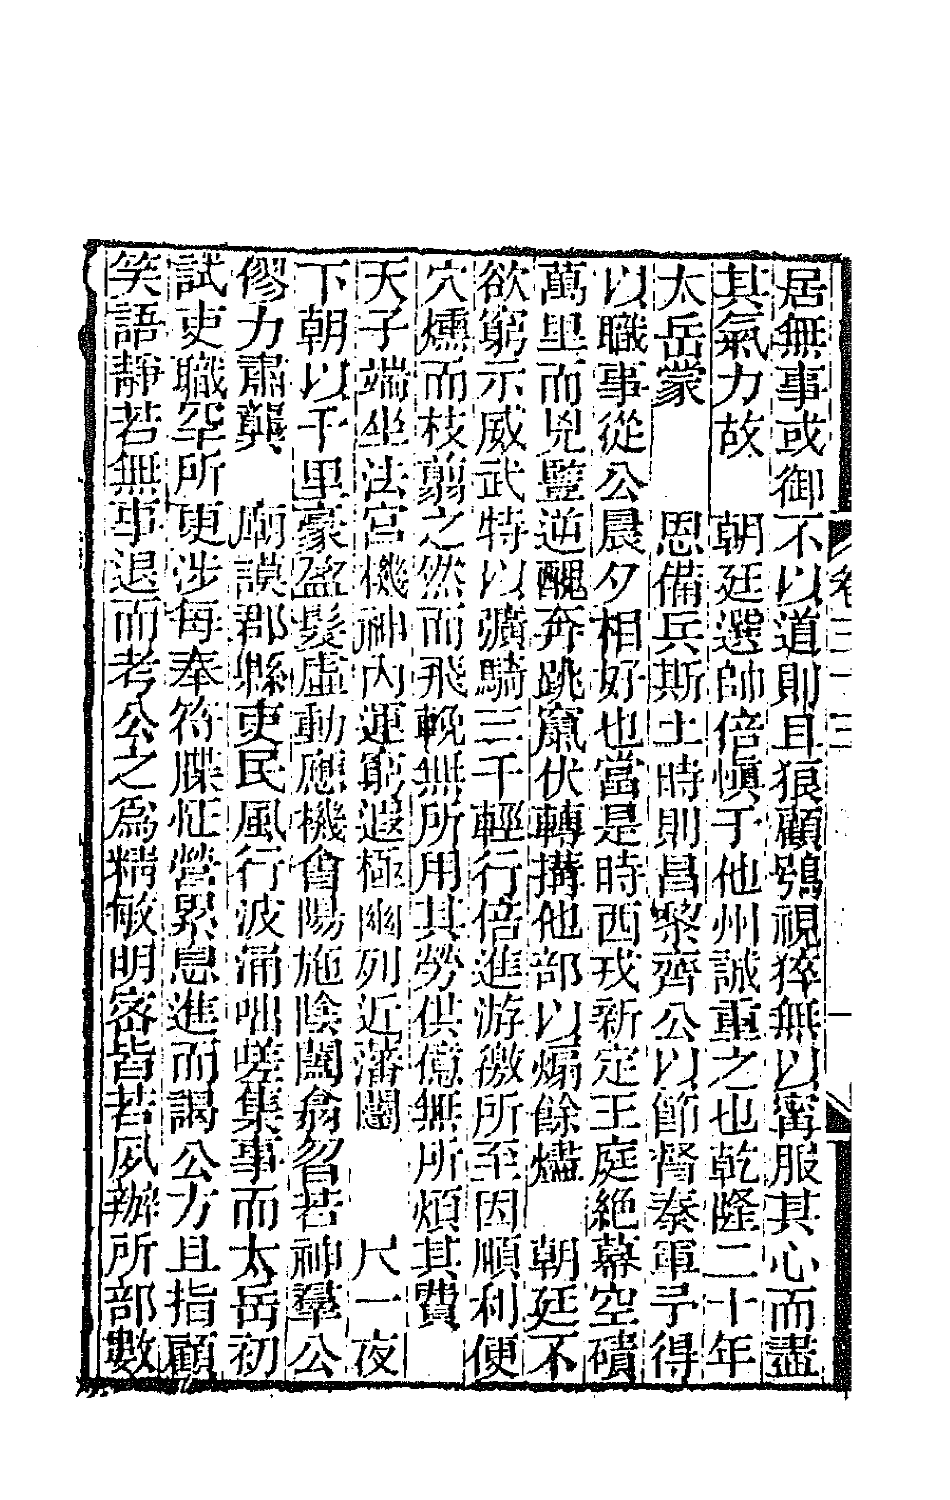 卷三十三
居無事或御不以道則且狼顧鴞視猝無以寗服其心而盡
其氣力故 朝廷選帥倍慎于他州誠重之也乾隆二十年
太岳蒙 恩備兵斯土時則昌黎齊公以節督泰軍予得
以職事從公晨夕相好也當是時西戎新定王庭絕幕空磧
萬里而兇豎逆醜奔跳竄伏轉搆他部以煽餘燼 朝廷不
欲窮示威武特以彍騎三千輕行倍進游徼所至因順利便
穴燻而枝剪之然而飛輓無所用其勞供億無所煩其費
天子端坐法宮機神內運窮遐極幽列近藩闥 尺一夜
下朝以千里豪盈髮虛動應機會陽施陰闔翕曶若神羣公
僇力肅龔 廟謨郡縣吏民風行波涌咄嗟集事而太岳初
試吏職罕所更涉每奉符牒怔營累息進而謁公方且指顧
笑語靜若無事退而考公之爲精敏明密皆若夙辦所部數